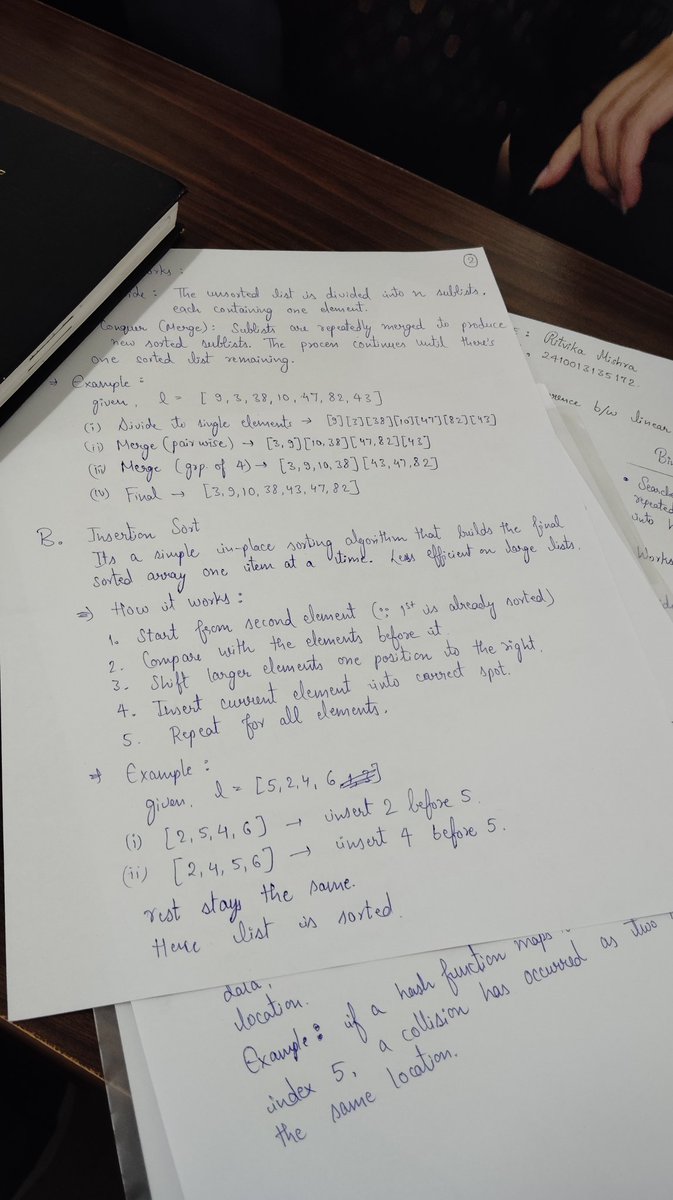 ②
works :
The unsorted list is divided into n sublists,
each containing one element.
Conquer (Merge): Sublists are repeatedly merged to produce
new sorted sublists. The process continues until there's
one sorted list remaining.
⇒ Example :
given, l = [ 9, 3, 38, 10, 47, 82, 43 ]
(i) Divide to single elements → [9][3][38][10][47][82][43]
(ii) Merge (pairwise) → [3,9][10,38][47,82][43]
(iii) Merge (grp. of 4) → [3,9,10,38][43,47,82]
(iv) Final → [3,9,10,38,43,47,82]
B. Insertion Sort
Its a simple in-place sorting algorithm that builds the final
sorted array one item at a time. Less efficient on large lists.
⇒ How it works :
1. Start from second element (∵ 1st is already sorted)
2. Compare with the elements before it.
3. Shift larger elements one position to the right.
4. Insert current element into correct spot.
5. Repeat for all elements.
⇒ Example :
given, l = [5, 2, 4, 6]
(i) [2, 5, 4, 6] → insert 2 before 5.
(ii) [2, 4, 5, 6] → insert 4 before 5.
rest stays the same.
Here list is sorted.
: Ritvika Mishra
2410013135172
b/w linear
Search
repeated
into
Works
data,
location.
Example: if a hash function maps
index 5, a collision has occurred as two
the same location.